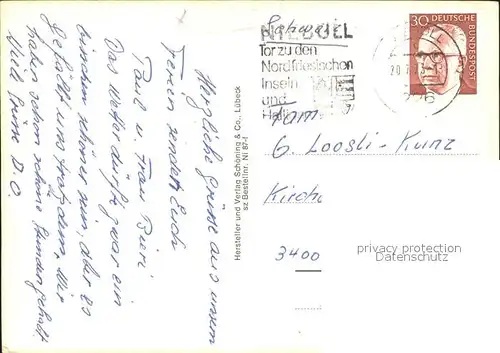 Herzliche Grüsse aus unsern
Ferien sendet Euch
Paul u. Frau Büri
Das Wetter dürfte zwar ein
bisschen schöner sein, aber es
gefällt uns trotzdem. Wir
haben schon schöne Stunden gehabt
Hersteller und Verlag Schöning & Co., Lübeck
sz Bestellnr. NI 87-f
Schweiz
NIEBÜLL
Tor zu den
Nordfriesischen
Inseln
und
30 DEUTSCHE
BUNDESPOST
Fam.
G. Loosli-Kunz
Kirch
3400
privacy protection
Datenschutz